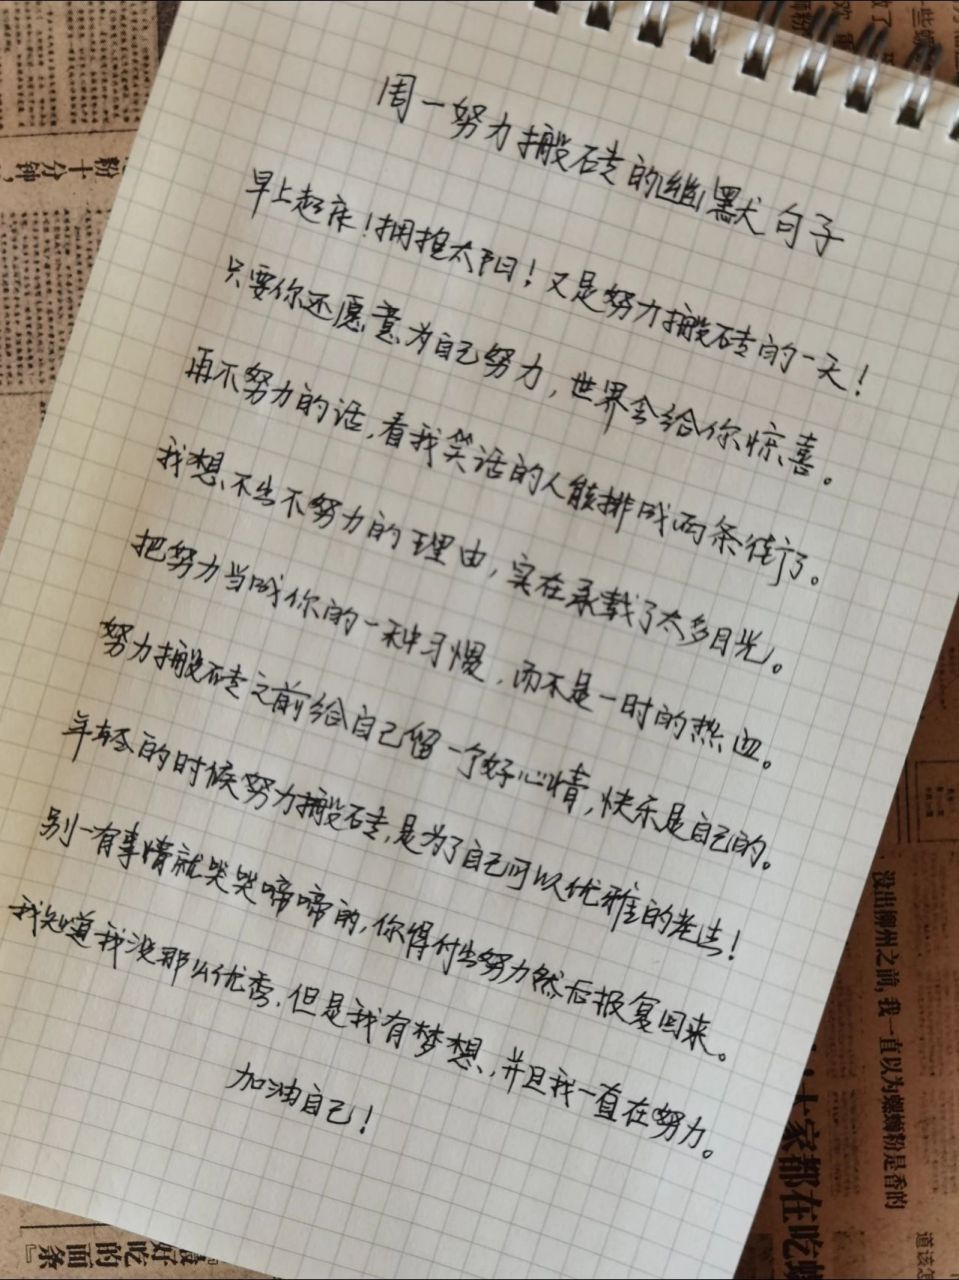 周一努力搬砖的幽默句子
早上起床！拥抱太阳！又是努力搬砖的一天！
只要你还愿意为自己努力，世界会给你惊喜。
再不努力的话，看我笑话的人能排成两条街了。
我想不出不努力的理由，实在承载了太多目光。
把努力当成你的一种习惯，而不是一时的热血。
努力搬砖之前给自己留一个好心情，快乐是自己的。
年轻的时候努力搬砖，是为了自己可以优雅的老去！
别一有事情就哭哭啼啼的，你得付出努力然后报复回来。
我知道我没那么优秀，但是我有梦想，并且我一直在努力。
加油自己！
粉十分钟，
没出柳州之前，我一直以为螺蛳粉是香的
大家都在吃螺